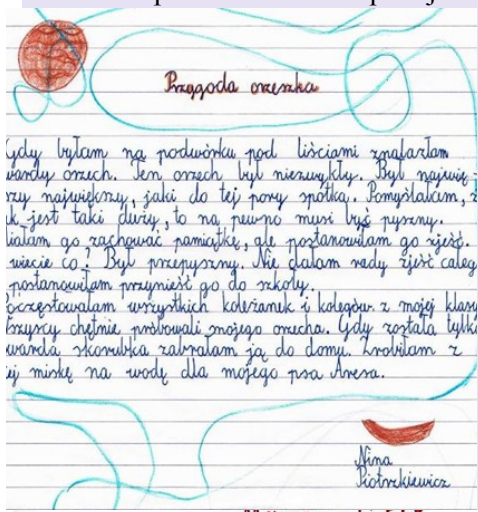 Przygoda orzeszka
Gdy byłam na podwórku pod liściami znalazłam
wardy orzech. Ten orzech był niezwykły. Był najwię-
szy największy, jaki do tej pory spotka. Pomyślałam, ż
k jest taki duży, to na pewno musi być pyszny.
iałam go zachować pamiątkę, ale postanowiłam go zjeść.
wiecie co? Był przepyszny. Nie dałam rady zjeść całeg
postanowiłam przynieść go do szkoły.
oczęstowałam wszystkich koleżanek i kolegów z mojej klasy
szyscy chętnie próbowali mojego orzecha. Gdy została tylko
warda skorubka zabrałam ją do domu. Zrobiłam z
ej miskę na wodę dla mojego psa Aresa.
Nina
Piotrzkiewicz